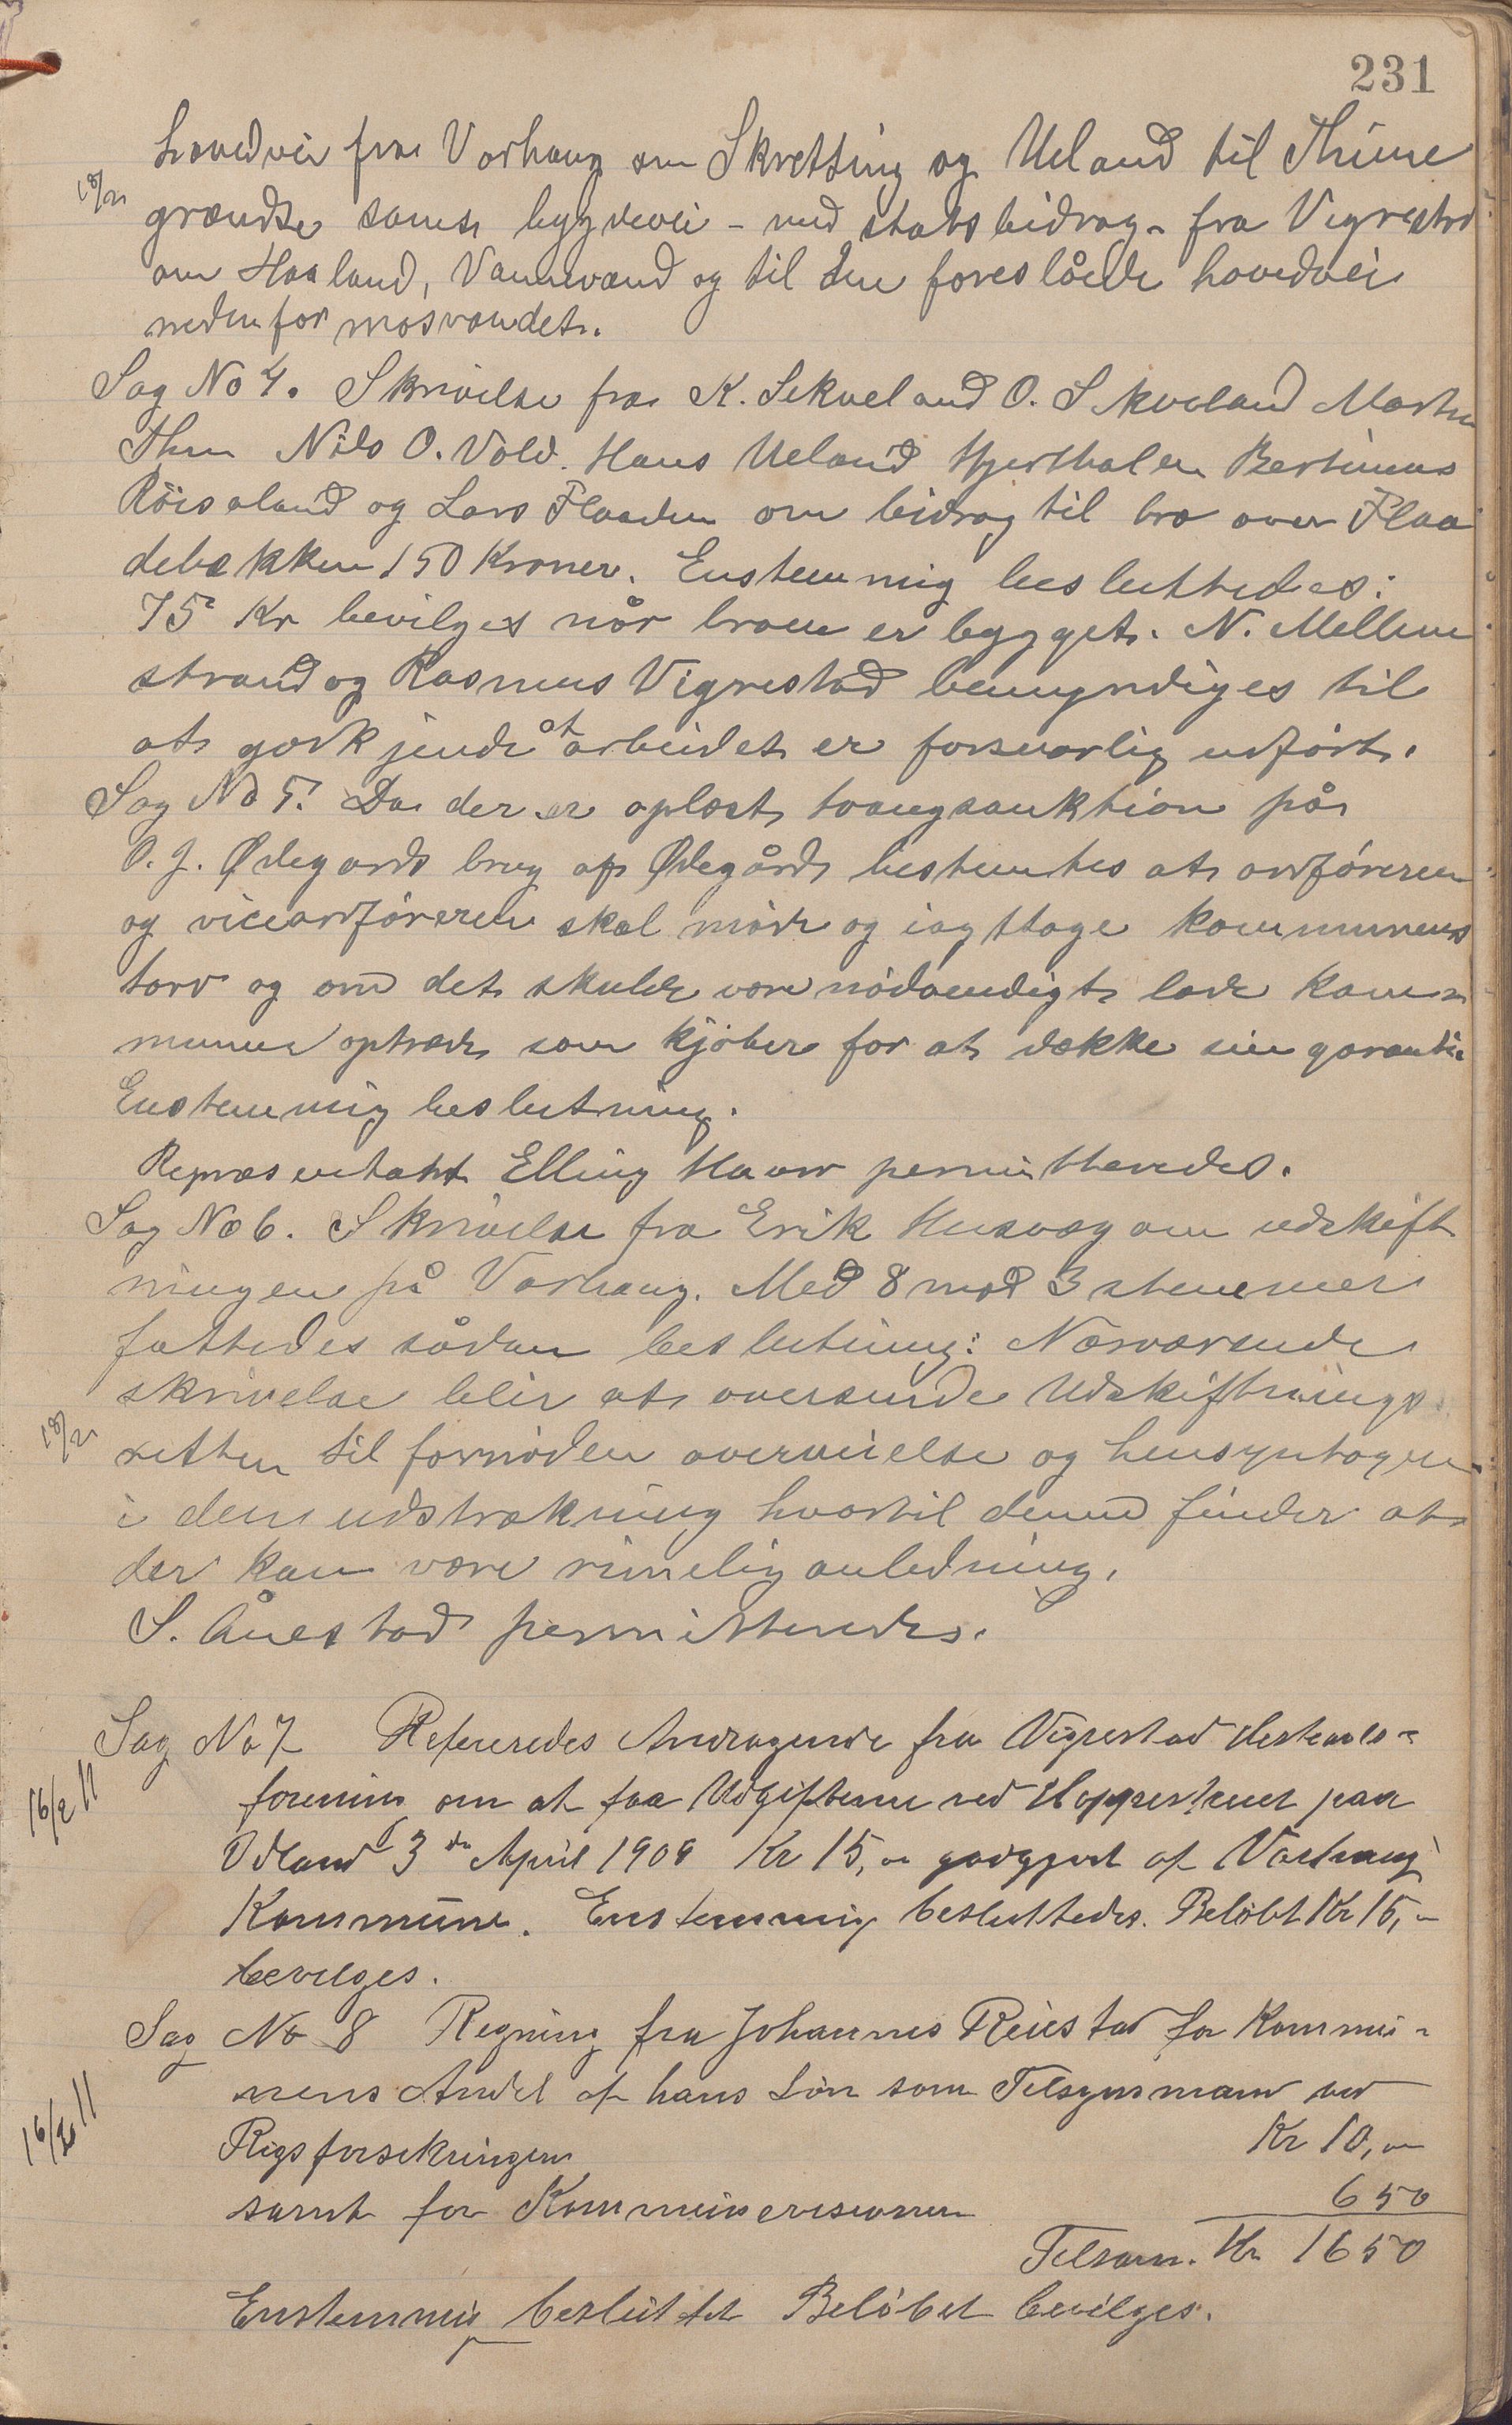 231
hovedvei fra Varhaug om Skretting og Ueland til Thime
18/2
grændse samt bygdevei – med statsbidrag – fra Vigrestad
om Haaland, Vannvand og til den foreslåede hovedvei
nedenfor mosvandet.
Sag No 4. Skrivelse fra K. Sekveland O. Skveland Martin
Thu Nils O. Vold. Hans Ueland Hjerthalen Bertinius
Röisaland og Lars Flaaden om bidrag til bro over Flaa
debækken 150 Kroner. Enstemmig besluttedes:
75 Kr bevilges når broen er bygget. N. Mellem
strand og Rasmus Vigrestad bemyndiges til
at godkjende at arbeidet er forsvarlig udført.
Sag No 5. Da der er oplæst tvangsauktion på
O. J. Ødegårds brug af Ødegård bestemtes at ordføreren
og viceordføreren skal møde og iagttage kommunens
tarv og om det skulde være nødvendigt lade kom
munen optræde som kjøber for at dække sin garanti.
Enstemmig beslutning.
Repræsentant Elling Haar permitteredes.
Sag No 6. Skrivelse fra Erik Husvæg om udskift
ningen på Varhaug. Med 8 mod 3 stemmer
fattedes sådan beslutning: Nærværende
skrivelse blir at oversende Udskiftnings
18/2
retten til fornøden overveielse og hensyntagen
i den udstrækning hvortil denne finder at
der kan være rimelig anledning.
S. Ånestad permitteredes.
Sag No 7 Refereredes Andragende fra Vigrestad Hesteavls-
16/2 11
forening om at faa Udgifterne ved Hoppeskuet paa
Odland 3de April 1908 Kr 15,- godtgjort af Varhaug
Kommune. Enstemmig besluttedes. Beløbet Kr 15,-
bevilges.
Sag No 8 Regning fra Johannes Reiestad for Kommu-
nens Andel af hans Løn som Tilsynsmand ved
16/2 11
Rigsforsikringen Kr 10,-
samt for Kommunerevisionen 650
Tilsam. Kr 1650
Enstemmig besluttet Beløbet bevilges.